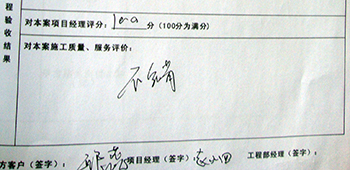 程验收结果
对本案项目经理评分: 100 分 (100分为满分)
对本案施工质量、服务评价:
不错
方客户(签字): 项目经理(签字) 工程部经理(签字):